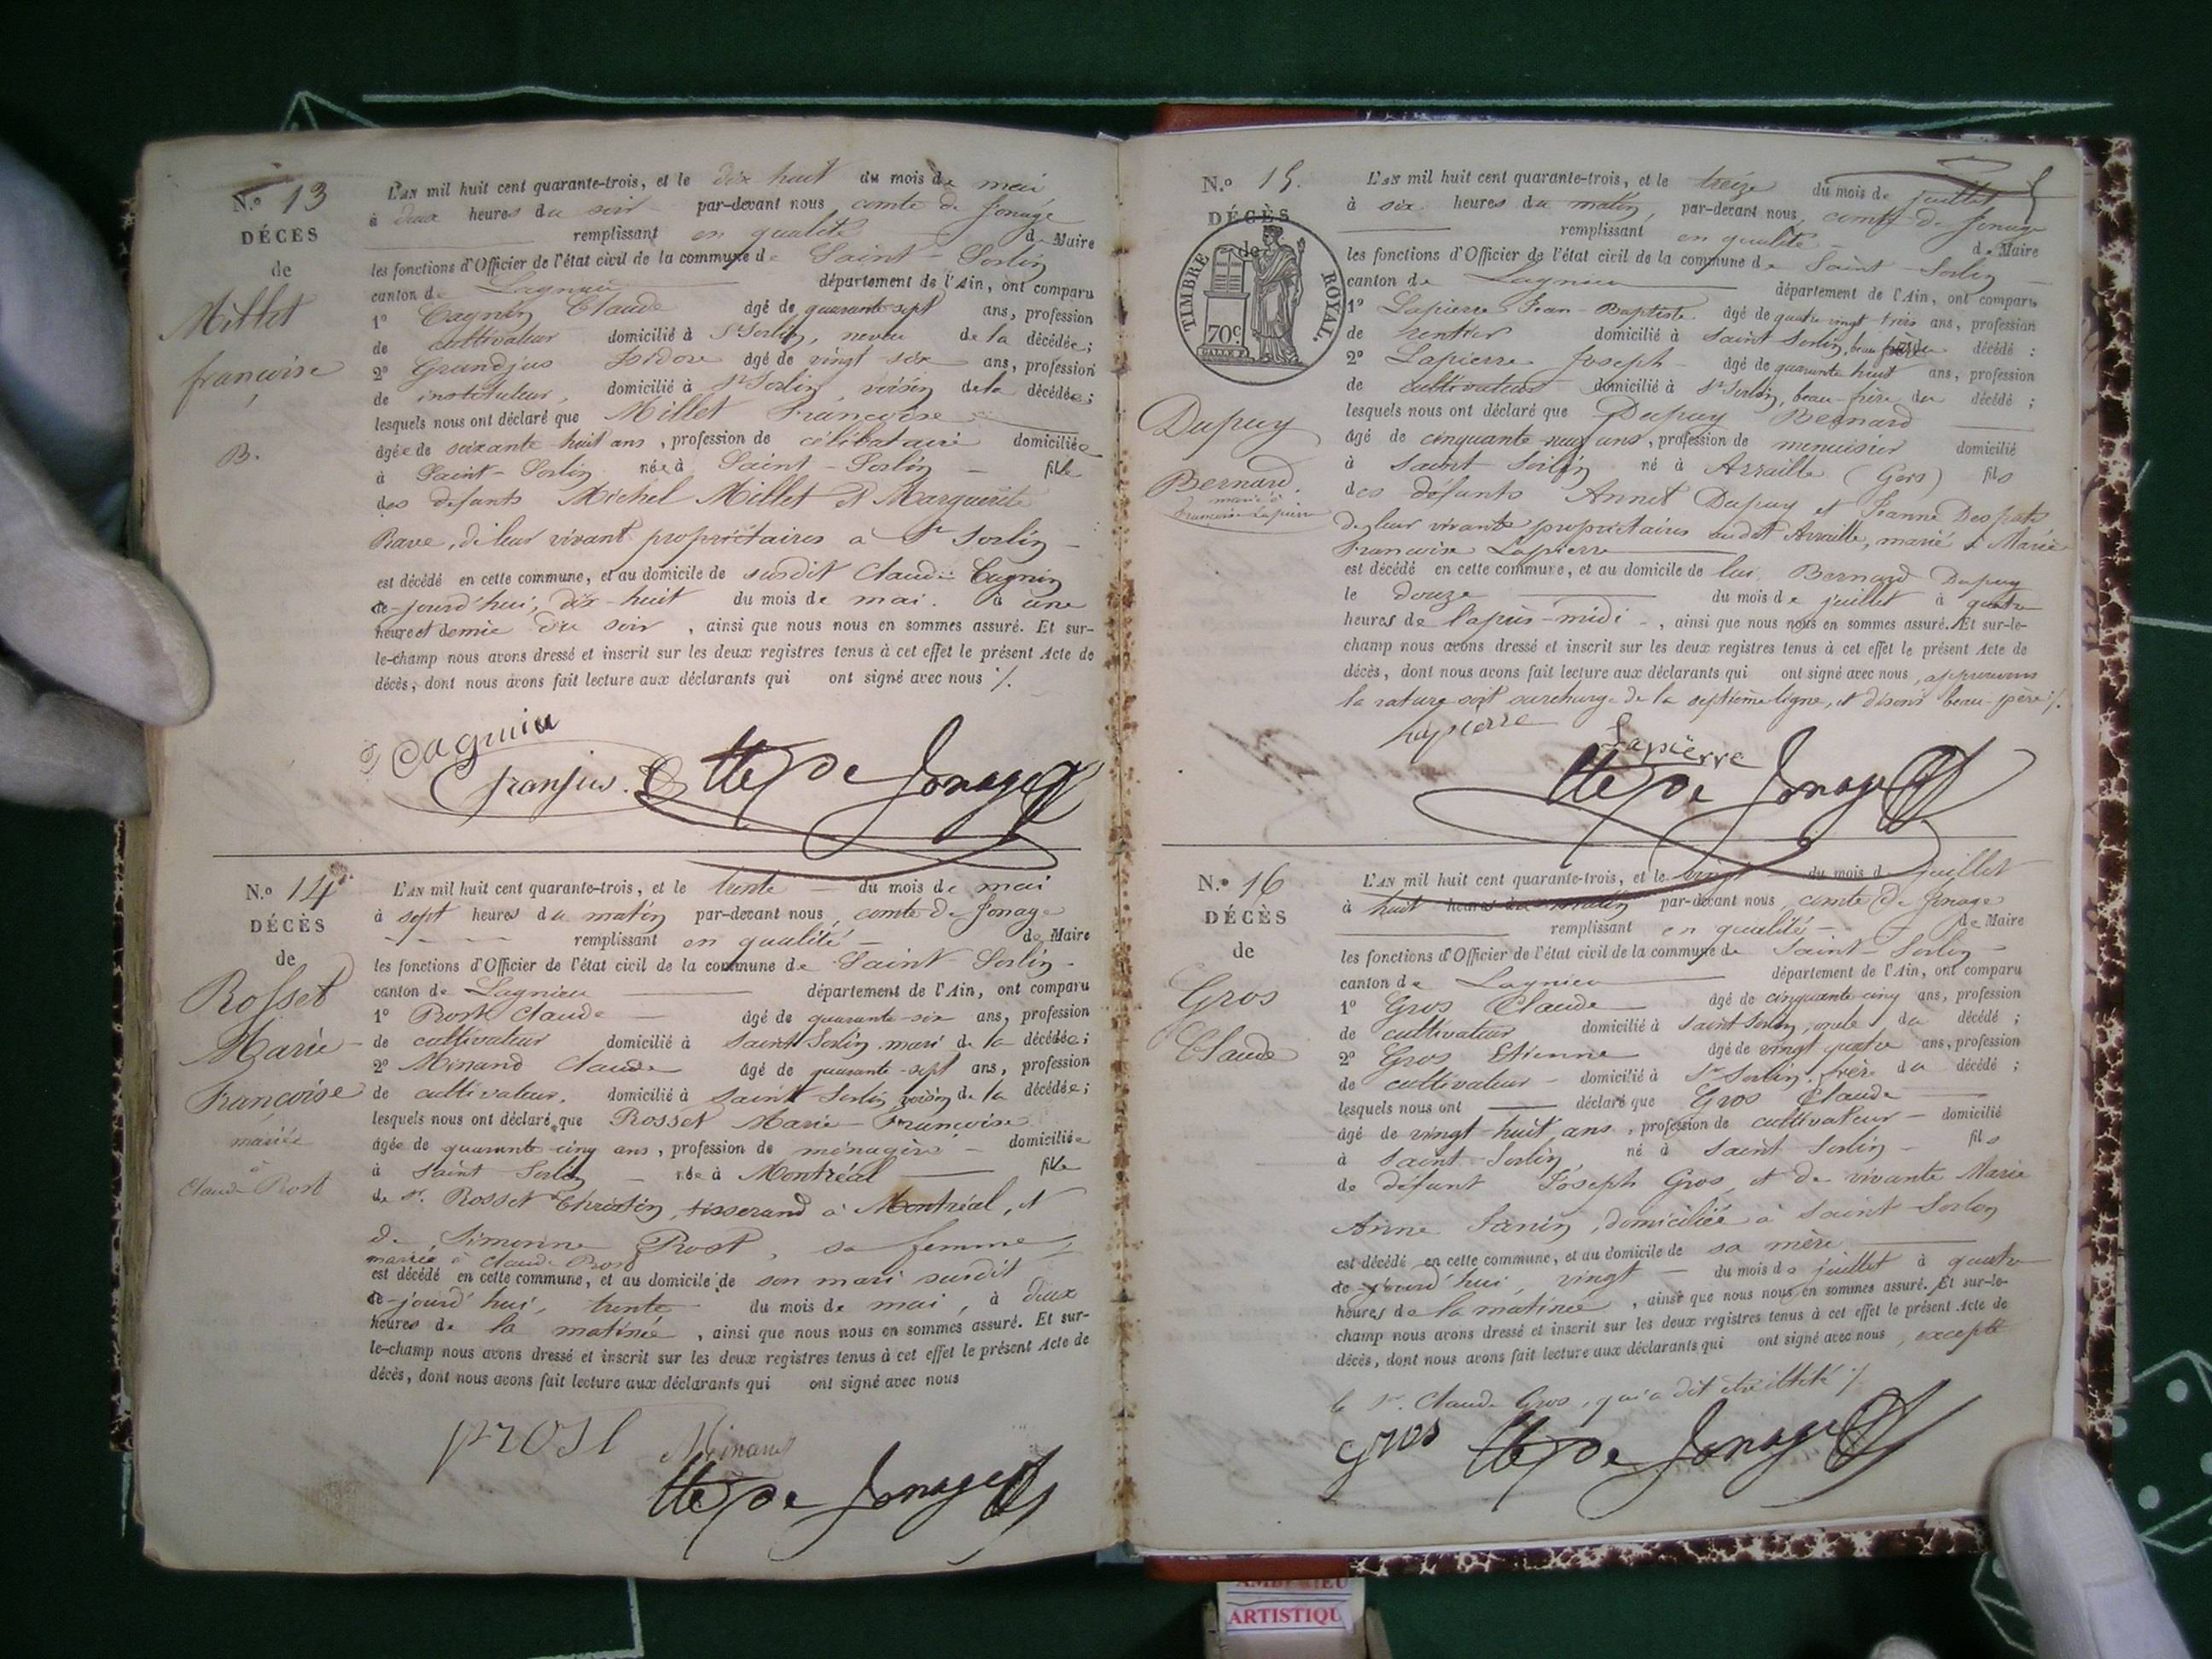 N.º 13
DÉCÈS
de
Millet
françoise
B.
L'AN mil huit cent quarante-trois, et le dix huit du mois de mai
à deux heures du soir par-devant nous, comte de Jonage
remplissant en qualité de Maire
les fonctions d'Officier de l'état civil de la commune de Saint-Sorlin
canton de Lagnieu département de l'Ain, ont comparu
1º Cagnin Claude âgé de quarante sept ans, profession
de cultivateur domicilié à St Sorlin, neveu de la décédée;
2º Grandjus Isidore âgé de vingt six ans, profession
de instituteur, domicilié à St Sorlin, voisin de la décédée;
lesquels nous ont déclaré que Millet Françoise
âgée de soixante huit ans, profession de célibataire domiciliée
à Saint-Sorlin née à Saint-Sorlin fille
des défunts Michel Millet et Marguerite
Rave, de leur vivant propriétaires à St Sorlin
est décédé en cette commune, et au domicile de susdit Claude Cagnin
ce-jourd'hui, dix-huit du mois de mai. à une
heure et demie du soir, ainsi que nous nous en sommes assuré. Et sur-
le-champ nous avons dressé et inscrit sur les deux registres tenus à cet effet le présent Acte de
décès, dont nous avons fait lecture aux déclarants qui ont signé avec nous ./.
Cagnin
Granjus. Cte de Jonage
N.º 14
DÉCÈS
de
Rosset
Marie
Françoise
mariée
à
Claude Prost
L'AN mil huit cent quarante-trois, et le trente du mois de mai
à sept heures du matin par-devant nous, comte de Jonage
remplissant en qualité de Maire
les fonctions d'Officier de l'état civil de la commune de Saint-Sorlin
canton de Lagnieu département de l'Ain, ont comparu
1º Prost Claude âgé de quarante-six ans, profession
de cultivateur domicilié à Saint Sorlin mari de la décédée;
2º Minand Claude âgé de quarante-sept ans, profession
de cultivateur. domicilié à Saint Sorlin, voisin de la décédée;
lesquels nous ont déclaré que Rosset Marie-Françoise
âgée de quarante cinq ans, profession de ménagère domiciliée
à Saint Sorlin née à Montréal fille
de Sr. Rosset Christin, tisserand à Montréal, et
de Simonne Prost, sa femme,
mariée à Claude Prost
est décédé en cette commune, et au domicile de son mari susdit
ce-jourd'hui, trente du mois de mai, à deux
heures de la matinée, ainsi que nous nous en sommes assuré. Et sur-
le-champ nous avons dressé et inscrit sur les deux registres tenus à cet effet le présent Acte de
décès, dont nous avons fait lecture aux déclarants qui ont signé avec nous
prost Minand
Cte de Jonage
N.º 15.
DÉCÈS
de
TIMBRE ROYAL.
70c.
Dupuy
Bernard.
marié à
françoise Lapierre
L'AN mil huit cent quarante-trois, et le treize du mois de juillet
à six heures du matin, par-devant nous, comte de Jonage
remplissant en qualité de Maire
les fonctions d'Officier de l'état civil de la commune de Saint-Sorlin
canton de Lagnieu département de l'Ain, ont comparu
1º Lapierre Jean-Baptiste âgé de quatre vingt trois ans, profession
de rentier domicilié à Saint Sorlin, beau du décédé :
2º Lapierre Joseph âgé de quarante huit ans, profession
de cultivateur domicilié à St Sorlin, beau-frère du décédé ;
lesquels nous ont déclaré que Dupuy Bernard
âgé de cinquante neuf ans, profession de menuisier domicilié
à Saint Sorlin né à Arraille (Gers) fils
des défunts Annet Dupuy et Jeanne
de leur vivants propriétaires audit Arraille, marié à Marie
Françoise Lapierre
est décédé en cette commune, et au domicile de lui, Bernard Dupuy
le douze du mois de juillet à quatre
heures de l'après-midi, ainsi que nous nous en sommes assuré. Et sur-le-
champ nous avons dressé et inscrit sur les deux registres tenus à cet effet le présent Acte de
décès, dont nous avons fait lecture aux déclarants qui ont signé avec nous, approuvons
la rature soit surcharge de la septième ligne, et disons beau-père ./.
Lapierre
Lapierre
Cte de Jonage
N.º 16
DÉCÈS
de
Gros
Claude
L'AN mil huit cent quarante-trois, et le vingt du mois de juillet
à huit heures du matin par-devant nous, comte de Jonage
remplissant en qualité de Maire
les fonctions d'Officier de l'état civil de la commune de Saint-Sorlin
canton de Lagnieu département de l'Ain, ont comparu
1º Gros Claude âgé de cinquante cinq ans, profession
de cultivateur domicilié à Saint Sorlin, oncle du décédé ;
2º Gros Etienne âgé de vingt quatre ans, profession
de cultivateur domicilié à St Sorlin. frère du décédé ;
lesquels nous ont déclaré que Gros Claude
âgé de vingt-huit ans, profession de cultivateur domicilié
à Saint Sorlin né à Saint Sorlin fils
de défunt Joseph Gros, et de vivante Marie
Anne Janin, domiciliée à Saint-Sorlin
est décédé en cette commune, et au domicile de sa mère
ce-jourd'hui vingt du mois de juillet à quatre
heures de la matinée, ainsi que nous nous en sommes assuré. Et sur-le-
champ nous avons dressé et inscrit sur les deux registres tenus à cet effet le présent Acte de
décès, dont nous avons fait lecture aux déclarants qui ont signé avec nous, excepté
le Sr. Claude Gros, qui a dit être illitéré ./.
gros Cte de Jonage
AMBERIEU
ARTISTIQU